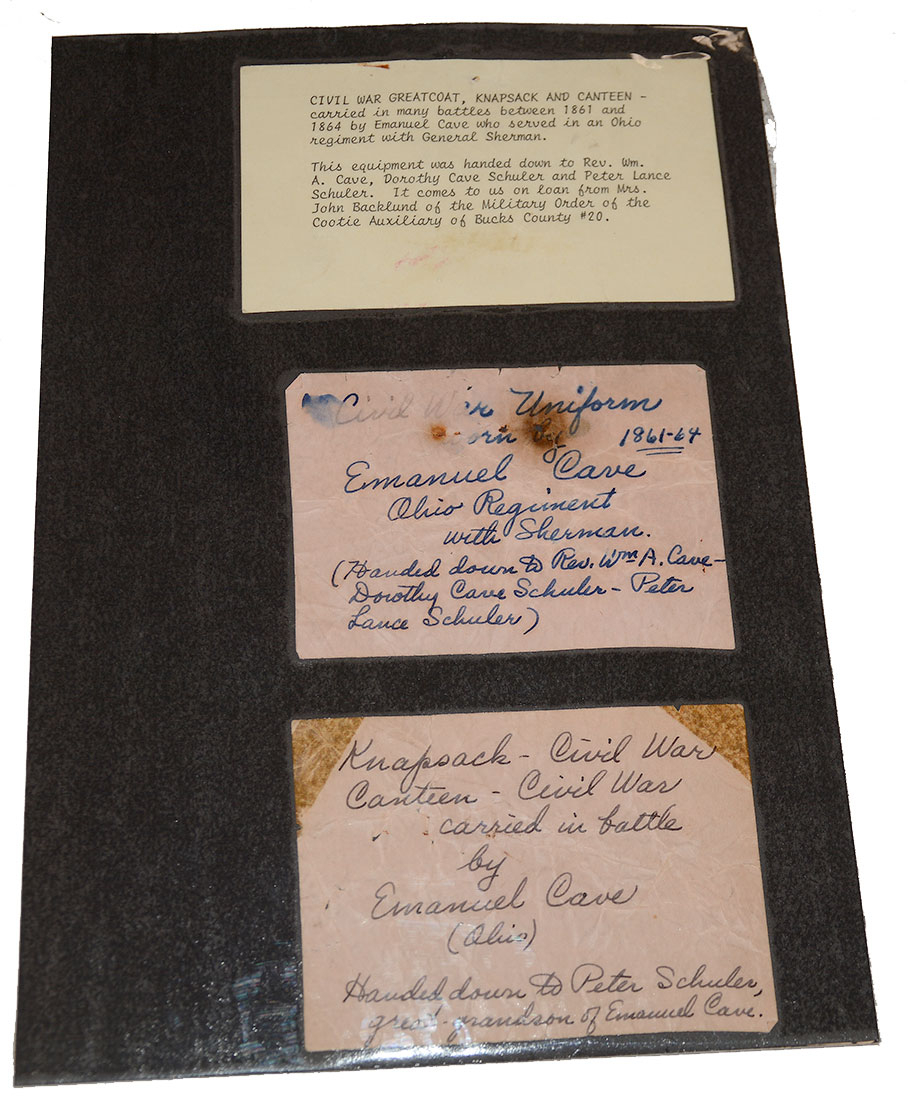 CIVIL WAR GREATCOAT, KNAPSACK AND CANTEEN -
carried in many battles between 1861 and
1864 by Emanuel Cave who served in an Ohio
regiment with General Sherman.
This equipment was handed down to Rev. Wm.
A. Cave, Dorothy Cave Schuler and Peter Lance
Schuler. It comes to us on loan from Mrs.
John Backlund of the Military Order of the
Cootie Auxiliary of Bucks County #20.
Civil War Uniform
worn by 1861-64
Emanuel Cave
Ohio Regiment
with Sherman.
(Handed down to Rev. Wm A. Cave-
Dorothy Cave Schuler - Peter
Lance Schuler)
Knapsack - Civil War
Canteen - Civil War
carried in battle
by
Emanuel Cave
(Ohio)
Handed down to Peter Schuler,
great-grandson of Emanuel Cave.